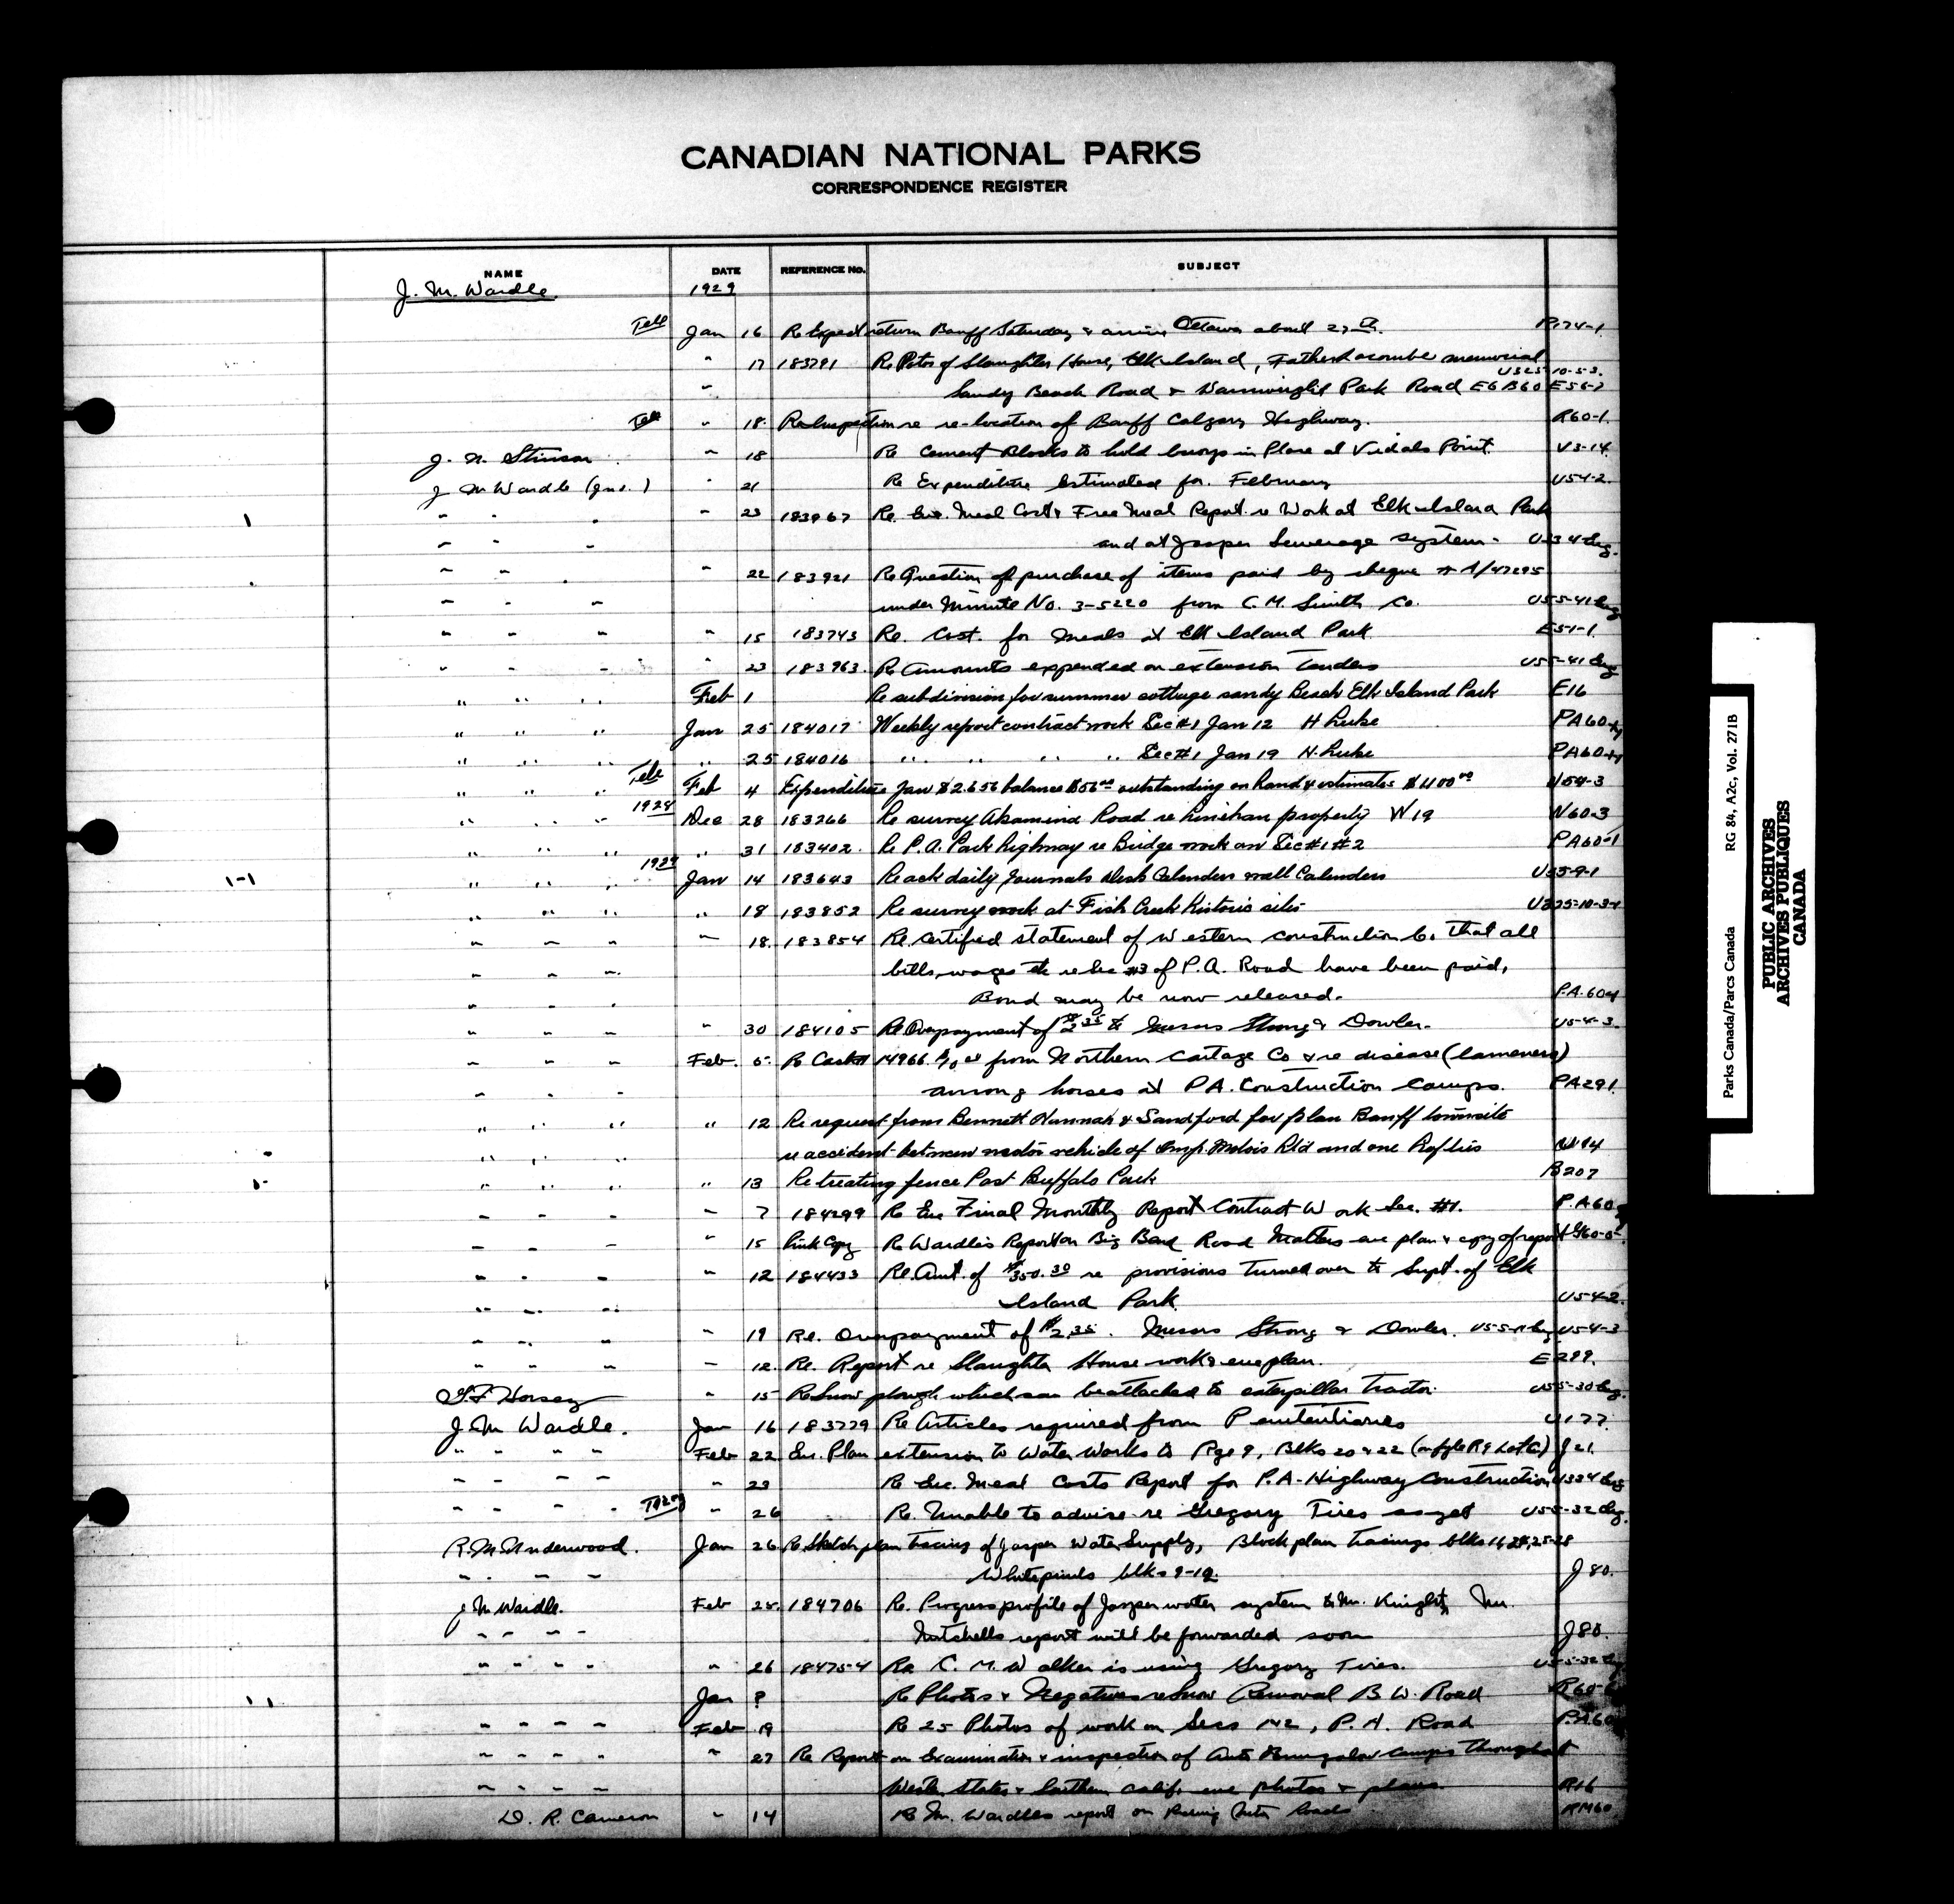 CANADIAN NATIONAL PARKS
CORRESPONDENCE REGISTER
NAME DATE REFERENCE No. SUBJECT
J. M. Wardle 1929
Jan 16 Re Expect return Banff Saturday & arrive Ottawa about 27th. R174-1
" 17 183791 Re Plan of Slaughter House, Elk Island, Father Lacombe memorial
U325-10-53.
" Sandy Beach Road & Wainwright Park Road E6 B60 E56-7
" 18 Re Inspection re re-location of Banff Calgary Highway. R60-1.
J. N. Stinson " 18 Re Cement Blocks to hold buoys in Place at Vidals Point. V3-14.
J M Wardle " 21 Re Expenditure Estimated for February U54-2.
1 " " " 23 183967 Re. Enc. Meal Cost & Free Meal Report re Work at Elk Island Park
" " and at Jasper Sewerage System - U334 Eng.
" " " 22 183921 Re Question of purchase of items paid by cheque # A/47295
" " " under Minute No. 3-5220 from C. M. Smith Co. U55-41 Eng
" " " " 15 183743 Re. Cost. for Meals at Elk Island Park E51-1.
" " " 23 183963. Re Amounts expended on extension Tenders U55-41 Eng
" " " Feb 1 Re subdivision for summer cottage sandy Beach Elk Island Park E16
" " " Jan 25 184017 Weekly report contract work Sec #1 Jan 12 H. Luke PA60
" " " " 25 184016 " " " " Sec #1 Jan 19 H. Luke PA60
" " " Tele Feb 4 Expenditure Jan $2656 balance $56 00 outstanding on hand & estimates $1100 00 U54-3
" " " 1928 Dec 28 183266 Re survey Akamina Road re Linehan property W19 W60-3
" " " " 31 183402. Re P.A. Park highway re Bridge work on Sec #1 #2 PA60-1
1-1 " " " 1929 Jan 14 183643 Re ack daily Journals desk Calenders wall Calenders U35-9-1
" " " " 18 183852 Re survey work at Fish Creek historic site U325-10-3
" " " " 18. 183854 Re. Certified statement of Western Construction Co. that all
" " " bills, wages etc re Sec #3 of P.A. Road have been paid,
" " " Bond may be now released. P.A.60
" " " " 30 184105 Re Overpayment of $2 35 to Messrs Strong & Dowler. U54-3.
" " " Feb. 5. 14966 from Northern Cartage Co & re disease (lameness)
" " " among horses at P.A. Construction Camps. PA291.
" " " " 12 Re request from Bennett Hannah & Sandford for plan Banff townsite
" " " re accident between motor vehicle of Imp. Motors Ltd and one W14
" " " " 13 Re treating fence Post Buffalo Park B207
" " " " 7 184299 Re Enc Final Monthly Report Contract Work Sec. #1. P.A60
" " " " 15 Pink Copy Re Wardle's Report on Big Bend Road Matters enc plan & copy of report
" " " " 12 184433 Re. Amt. of $350.30 re provisions turned over to Supt. of Elk
" " " Island Park. U54-2.
" " " " 19 Re. Overpayment of $2.35. Messrs Strong & Dowler. U54-3
" " " " 12. Re. Report re Slaughter House work & enc plan. E299.
" 15 Re Snow plough which can be attached to caterpillar tractor. U55-30 Eng.
J. M. Wardle. Jan 16 183729 Re Articles required from Penitentiaries U177.
" " " " Feb 22 Enc. Plan extension to Water Works to Pge 9, Blks 20 & 22 J 21.
" " " " " 23 Re Enc. Meal Costs Report for P.A. Highway Construction U334 Eng
" " " " " 26 Re. Unable to advise re Gregory Tires as yet U55-32 Eng.
R. M. Underwood. Jan 26 Re Sketch plan tracing of Jasper Water Supply, Block plan tracings blks
" " " " Whiteprints blks 9-12. J 80.
J M Wardle. Feb 25. 184706 Re. Progress profile of Jasper water system to Mr. Knight, Mr.
" " " " Mitchells report will be forwarded soon J 80.
" " " " " 26 184754 Re C. M. Walker is using Gregory Tires. U55-32
1 1 Jan ? Re Photos & Negatives re Snow Removal B. W. Road
" " " " Feb 19 Re 25 Photos of work on Secs 1 & 2, P.A. Road P.A60
" " " " " 27 Re Report on Examination & inspection of Auto Bungalow Camps throughout
" " " " Western States & Southern Calif. enc photos & plans. R16
D. R. Cameron " 14 Re Mr. Wardles report on Roads RM60
Parks Canada/Parcs Canada RG 84, A2c, Vol. 271B
PUBLIC ARCHIVES
ARCHIVES PUBLIQUES
CANADA